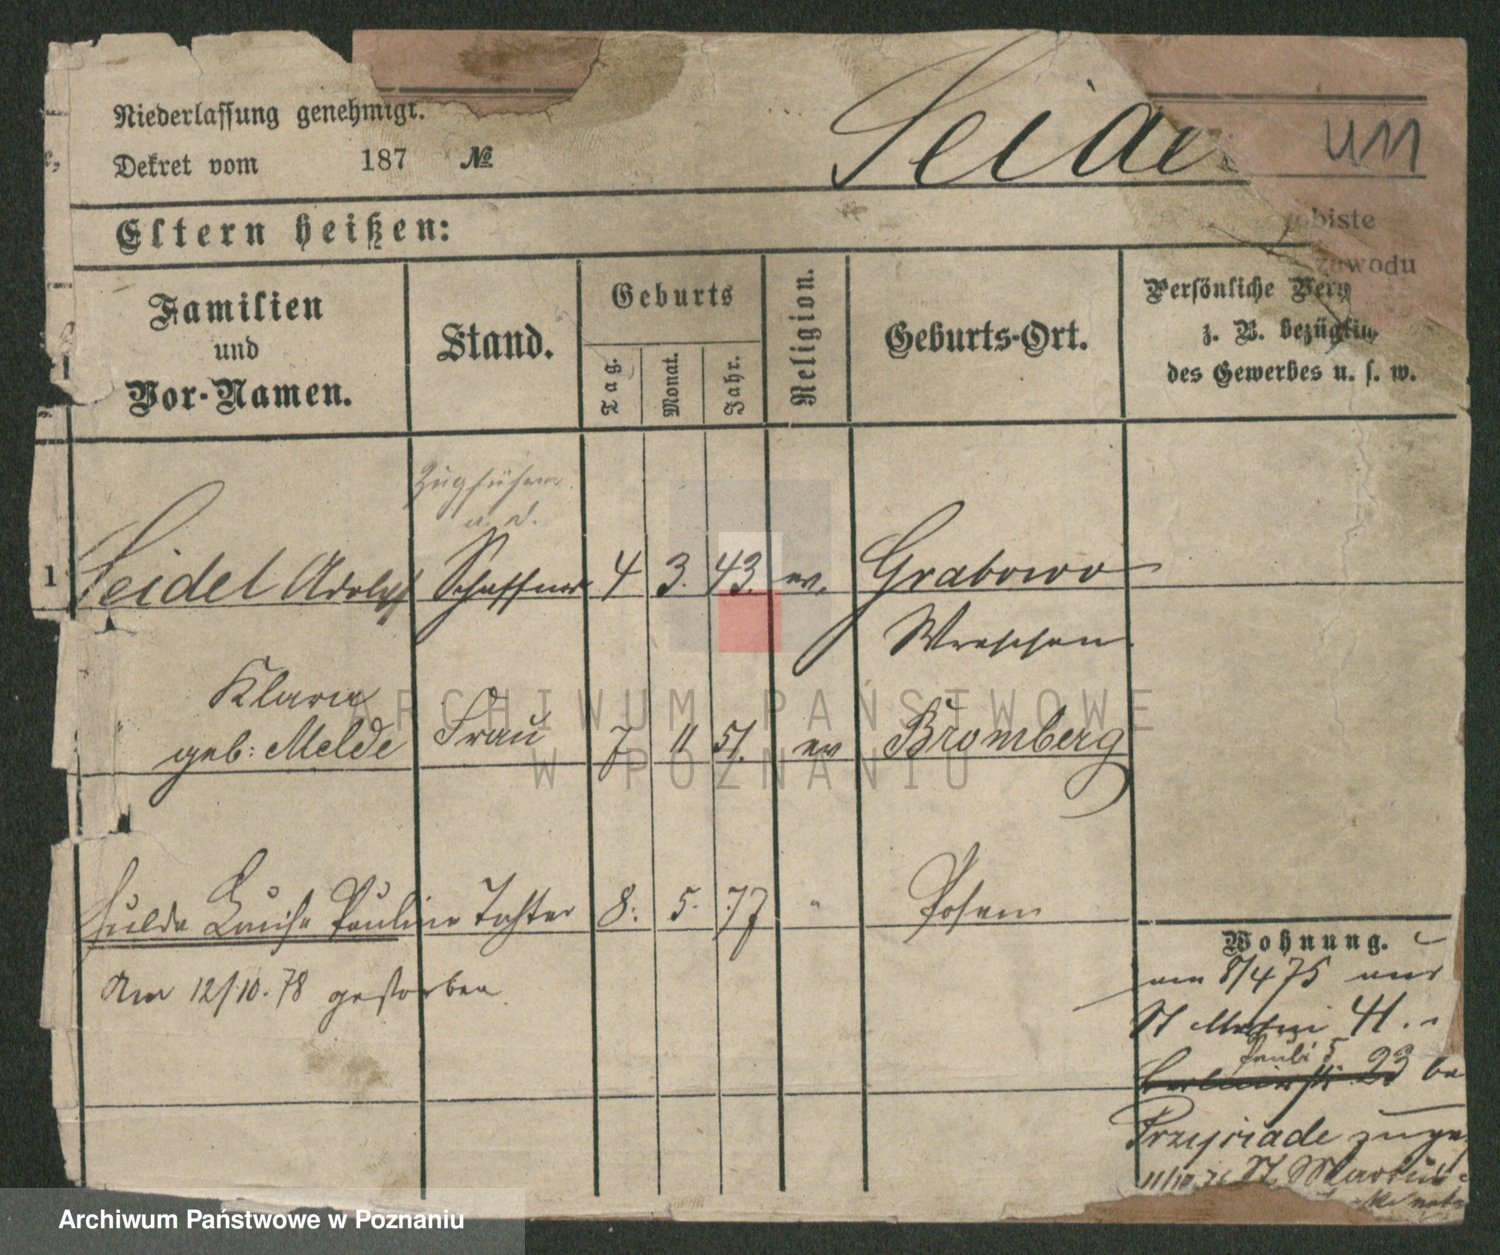 Niederlassung genehmigt.
Dekret vom 187 №
Seide
411
Eltern heißen:
obiste
zawodu
Familien und Vor-Namen.
Stand.
Geburts
Tag.
Monat.
Jahr.
Religion.
Geburts-Ort.
Persönliche Verh
z. B. bezüglich
des Gewerbes u. s. w.
Zugführer
a. d.
1 Seidel Adolf Schaffner 4 3. 43. ev. Grabowo
Wreschen
Klara
" geb: Melde Frau 7 11 51. ev Bromberg
Hulda Luise Pauline Tochter 8. 5. 77 " Posen
Am 12/10. 78 gestorben
Wohnung.
am 8/4 75 aus
St Martin 41.
Pauli 5
23
Przyjriade zuge
11/10 76 St. Martin
ARCHIWUM PAŃSTWOWE
W POZNANIU
Archiwum Państwowe w Poznaniu